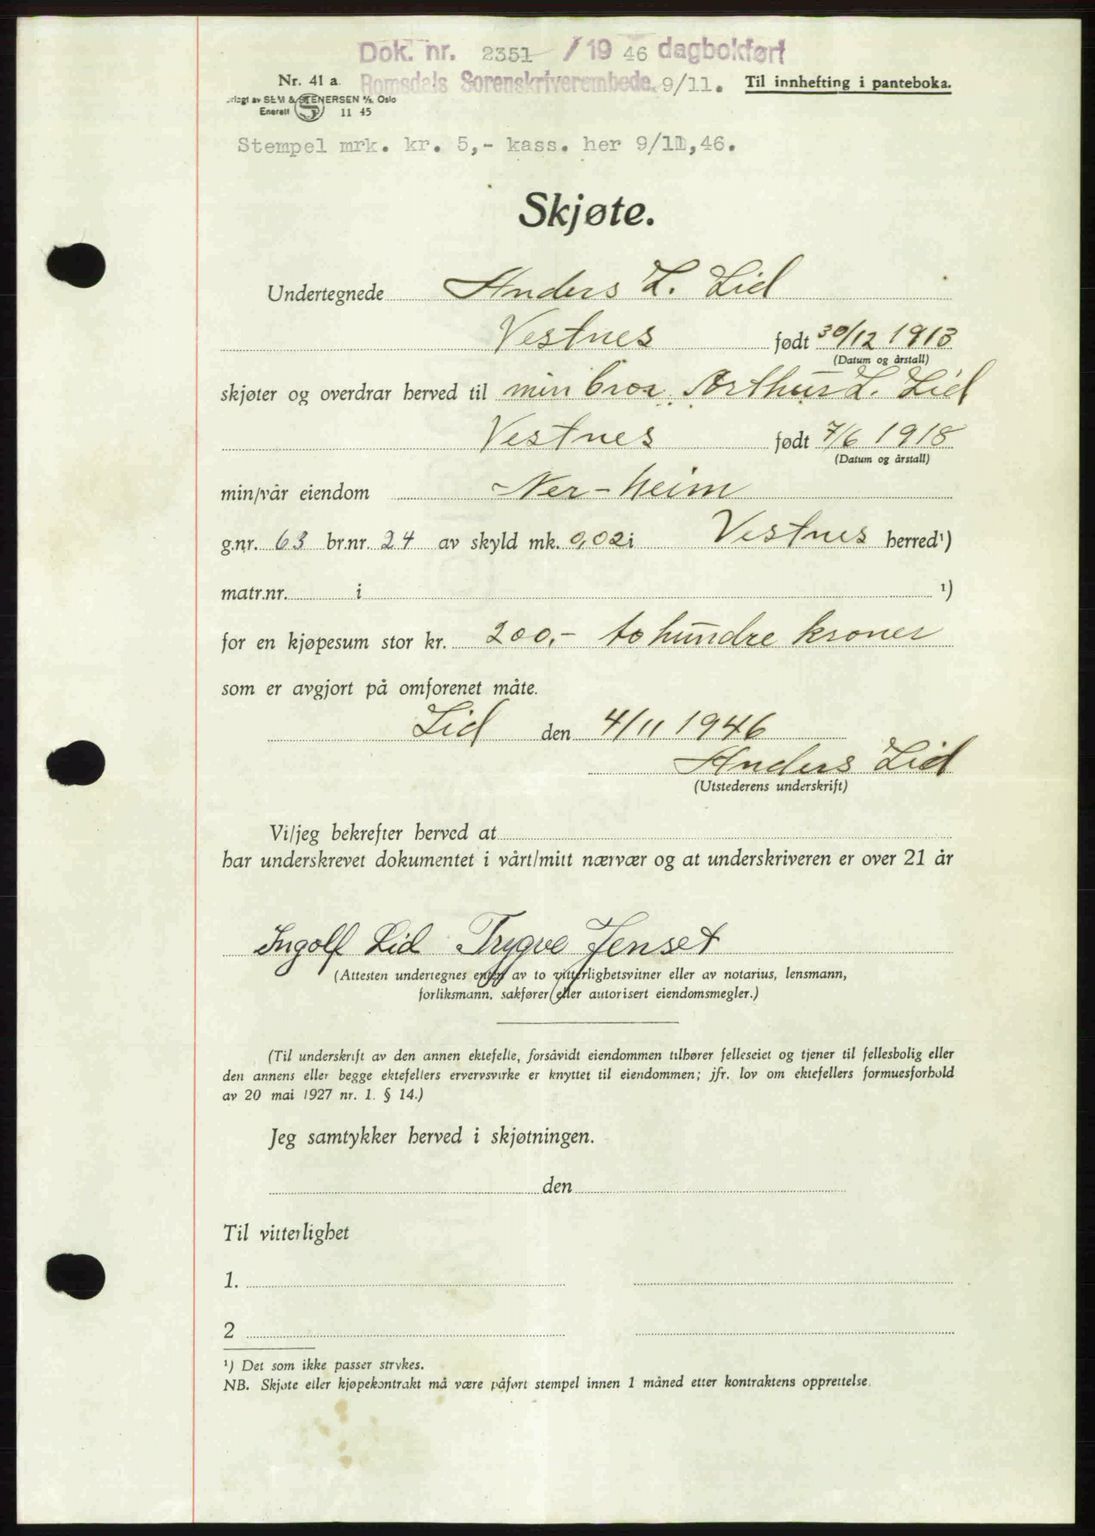 Dok. nr. 2351 / 19 46 dagbokført
Romsdals Sorenskriverembede. 9/11.
Nr. 41 a
Til innhefting i panteboka.
SEM & STENERSEN A/S. Oslo
Enerett 11 45
Stempel mrk. kr. 5,- kass. her 9/11,46.
Skjøte.
Undertegnede Anders L. Lid
Vestnes født 30/12 1913
(Datum og årstall)
skjøter og overdrar herved til min bror, Arthur L. Lid
Vestnes født 7/6 1918
(Datum og årstall)
min/vår eiendom Ner-heim
g.nr. 63 br.nr. 24 av skyld mk. 0,02 i Vestnes herred¹)
matr.nr. i ¹)
for en kjøpesum stor kr. 200,- to hundre kroner
som er avgjort på omforenet måte.
Lid den 4/11 1946
Anders Lid
(Utstederens underskrift)
Vi/jeg bekrefter herved at
har underskrevet dokumentet i vårt/mitt nærvær og at underskriveren er over 21 år
Ingolf Lid Trygve Jenset
(Attesten undertegnes enten av to vitterlighetsvitner eller av notarius, lensmann,
forliksmann, sakfører eller autorisert eiendomsmegler.)
(Til underskrift av den annen ektefelle, forsåvidt eiendommen tilhører felleseiet og tjener til fellesbolig eller
den annens eller begge ektefellers ervervsvirke er knyttet til eiendommen; jfr. lov om ektefellers formuesforhold
av 20 mai 1927 nr. 1. § 14.)
Jeg samtykker herved i skjøtningen.
den
Til vitterlighet
1.
2
¹) Det som ikke passer strykes.
NB. Skjøte eller kjøpekontrakt må være påført stempel innen 1 måned etter kontraktens opprettelse.